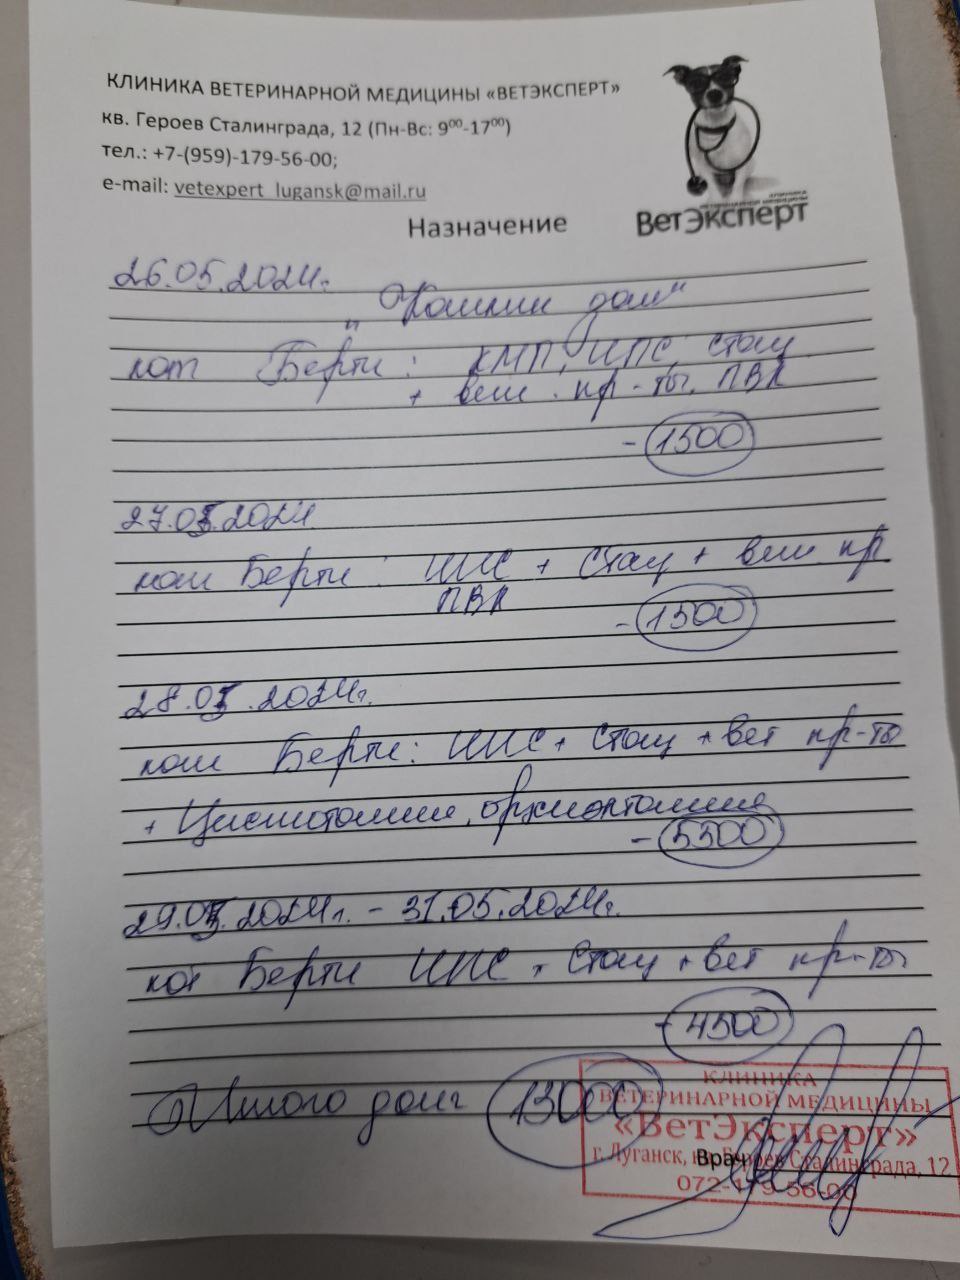 КЛИНИКА ВЕТЕРИНАРНОЙ МЕДИЦИНЫ «ВЕТЭКСПЕРТ»
кв. Героев Сталинграда, 12 (Пн-Вс: 9⁰⁰-17⁰⁰)
тел.: +7-(959)-179-56-00;
e-mail: vetexpert_lugansk@mail.ru
КЛИНИКА
ВЕТЕРИНАРНОЙ МЕДИЦИНЫ
ВетЭксперт
Назначение
26.05.2024г.
"Кошкин дом"
кот Берти: КМП, ЦПС, стац
+ вет. пр-ты, ПВК
- 1500
27.05.2024
кот Берти: ЦПС + Стац + вет. пр
ПВК
- 1500
28.05.2024г.
кот Берти: ЦПС + Стац + вет пр-ты
+ Цистотомия,
- 5500
29.05.2024г. - 31.05.2024г.
кот Берти ЦПС + Стац + вет пр-ты
- 4500
Итого долг 13000
КЛИНИКА
ВЕТЕРИНАРНОЙ МЕДИЦИНЫ
«ВетЭксперт»
г. Луганск, кв. Героев Сталинграда, 12
072-179-56-00
Врач